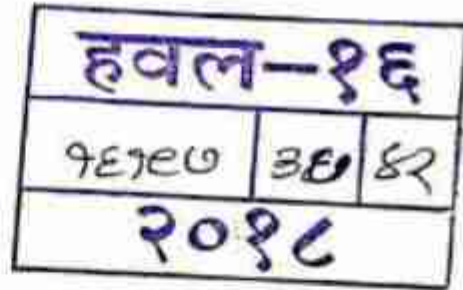 हवल-१६
१६१९७ ३६ ४२
२०१८